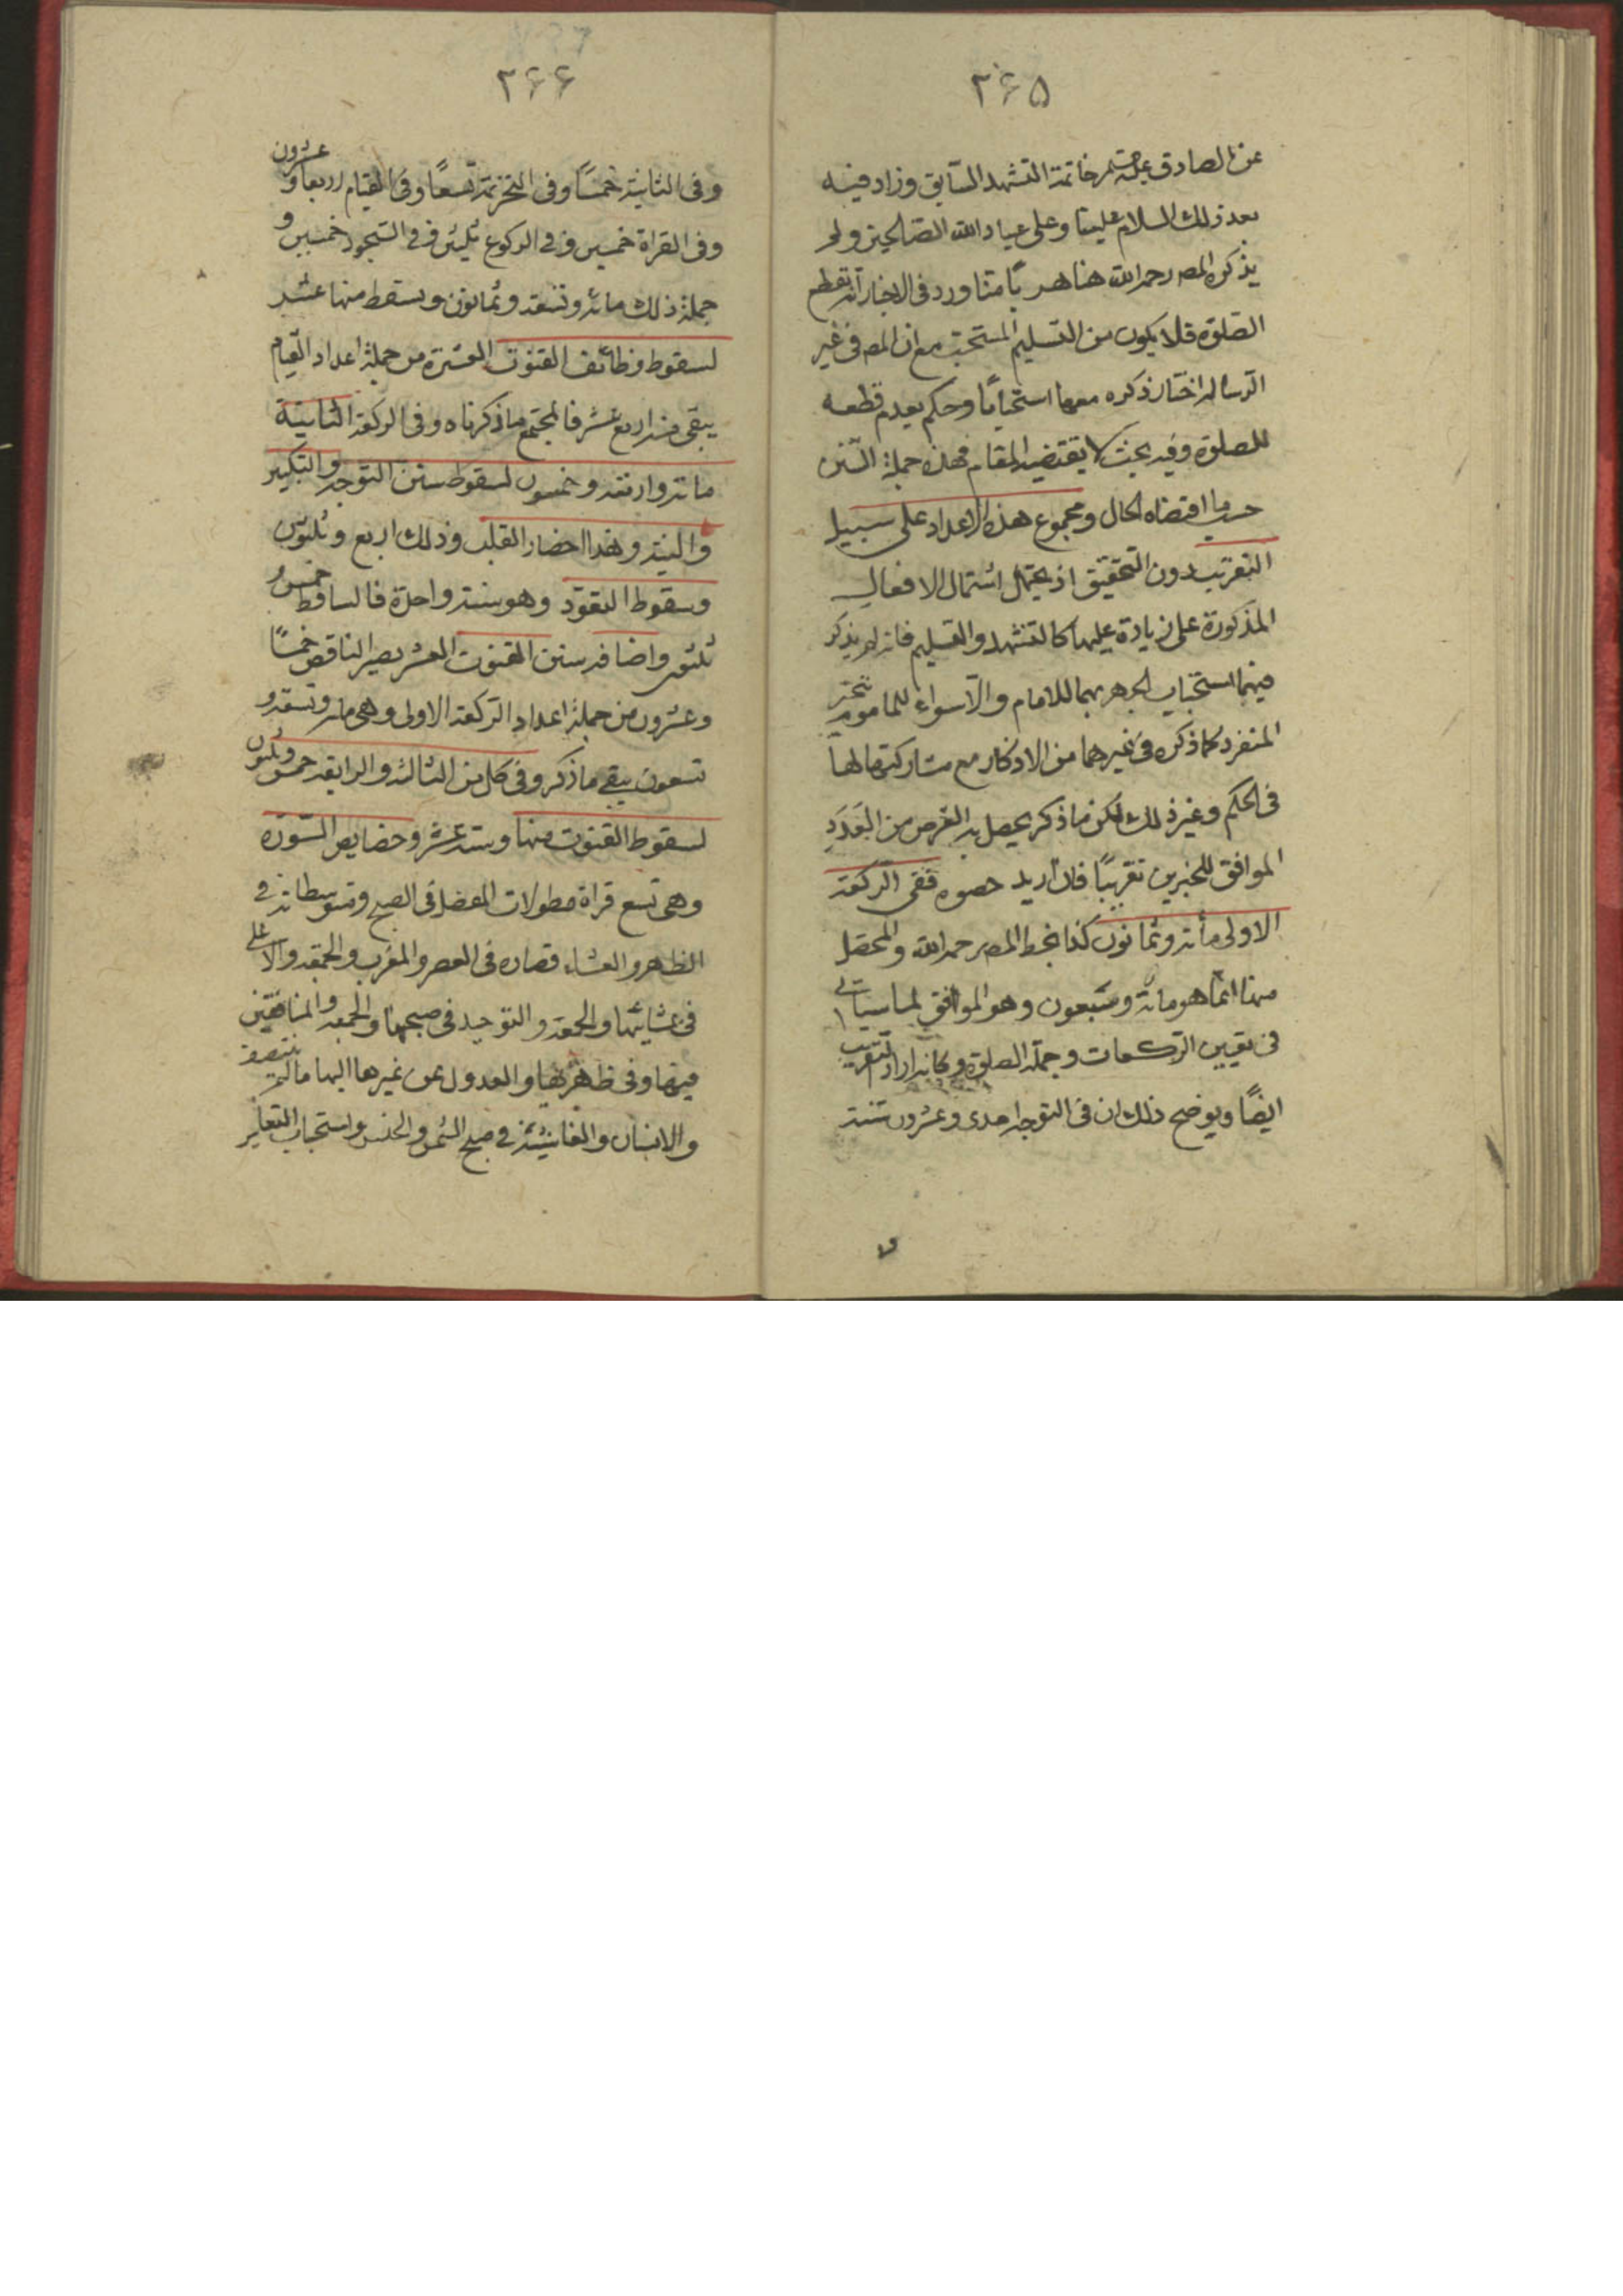 ۳۶۵
عن الصادق علیه السلم خاتمة التشهد السابق وزاد فیه
بعد ذلك السلام علینا وعلی عباد الله الصالحین ولم
یذکره المصه رحمه الله هنا هربًا مما ورد فی الاخبار انه یقطع
الصلوة فلا یکون من التسلیم المستحب مع ان المصه فی غیر
الرساله اختار ذکره معها استحبابًا وحکم بعدم قطعه
للصلوة وفیه بحث لا یقتضیه المقام فهذه جملة السنن
حسب ما اقتضاه الحال ومجموع هذه الاعداد علی سبیل
التقریب دون التحقیق اذ یحتمل اشتمال الافعال
المذکورة علی زیادة علیها کالتشهد والتسلیم فانه لم یذکر
فیهما استحباب الجهر بهما للامام والاسرار للماموم وتخیر
المنفرد کما ذکره فی غیرهما من الاذکار مع مشارکتهما لها
فی الحکم وغیر ذلك لکن ما ذکر یحصل به الغرض من العدد
الموافق للخبرین تقریبًا فان ارید حصره ففی الرکعة
الاولی مائة وثمانون کذا بخط المصه رحمه الله والمحصل
مهنا انما هو مائة وسبعون وهو الموافق لما سیاتی
فی تعیین الرکعات وجملة الصلوة وکانه اراد التقریب
ایضًا ویوضح ذلك ان فی التوجه احدی وعشرون سنة
و
۳۶۶
وفی الثانیة خمسًا وفی التحریمة تسعًا وفی القیام اربعا و عشرون
وفی القراة خمسین وفی الرکوع ثلثین وفی السجود خمسین و
جملة ذلك مائة وتسعة وثمانون ویسقط منها عشر
لسقوط وظائف القنوت العشرة من جملة اعداد القیام
یبقی منه اربع عشر فالمجتمع ما ذکرناه وفی الرکعة الثانیة
مائة واربعة وخمسون لسقوط سنن التوجه والتکبیر
والنیة وهذا احضار القلب وذلك اربع وثلثون
وسقوط التعوذ وهو سنة واحدة فالساقط خمس و
ثلثون واضافة سنن القنوت العشر یصیر الناقص خمسًا
وعشرون من جملة اعداد الرکعة الاولی وهی مائة وتسعة و
تسعون یبقی ما ذکر وفی کل من الثالثه والرابعة خمس وثلثون
لسقوط القنوت منها وستة عشر وخصایص السورة
وهی تسع قراة مطولات المفصل فی الصبح ومتوسطاته فی
الظهر والعشاء وقصاره فی العصر والمغرب والجمعة والاعلی
فی عشائها والجمعة والتوحید فی صبحها والجمعه والمنافقین
فیها وفی ظهریها والعدول عن غیرها الیها ما لم ینتصف
والانسان والغاشیة فی صبح الاثنین والخمیس واستحباب التغایر